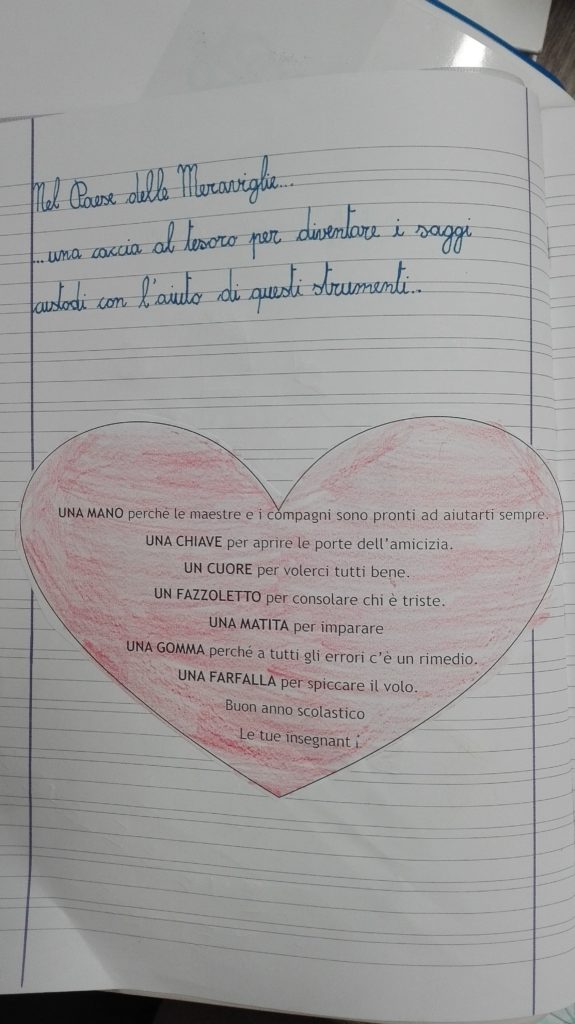 Nel Paese delle Meraviglie...
...una caccia al tesoro per diventare i saggi
custodi con l'aiuto di questi strumenti..
UNA MANO perchè le maestre e i compagni sono pronti ad aiutarti sempre.
UNA CHIAVE per aprire le porte dell'amicizia.
UN CUORE per volerci tutti bene.
UN FAZZOLETTO per consolare chi è triste.
UNA MATITA per imparare
UNA GOMMA perché a tutti gli errori c'è un rimedio.
UNA FARFALLA per spiccare il volo.
Buon anno scolastico
Le tue insegnanti